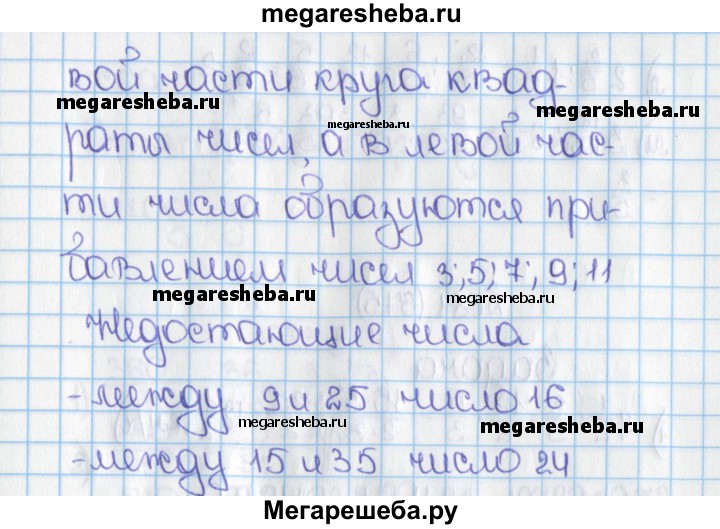 megaresheba.ru
вой части круга квад-
megaresheba.ru
megaresheba.ru
megaresheba.ru
раты чисел, а в левой час-
ти числа образуются при-
бавлением чисел 3; 5; 7; 9; 11
megaresheba.ru
megaresheba.ru
Недостающие числа
- между 9 и 25 число 16
megaresheba.ru
megaresheba.ru
- между 15 и 35 число 24
Мегарешеба.ру